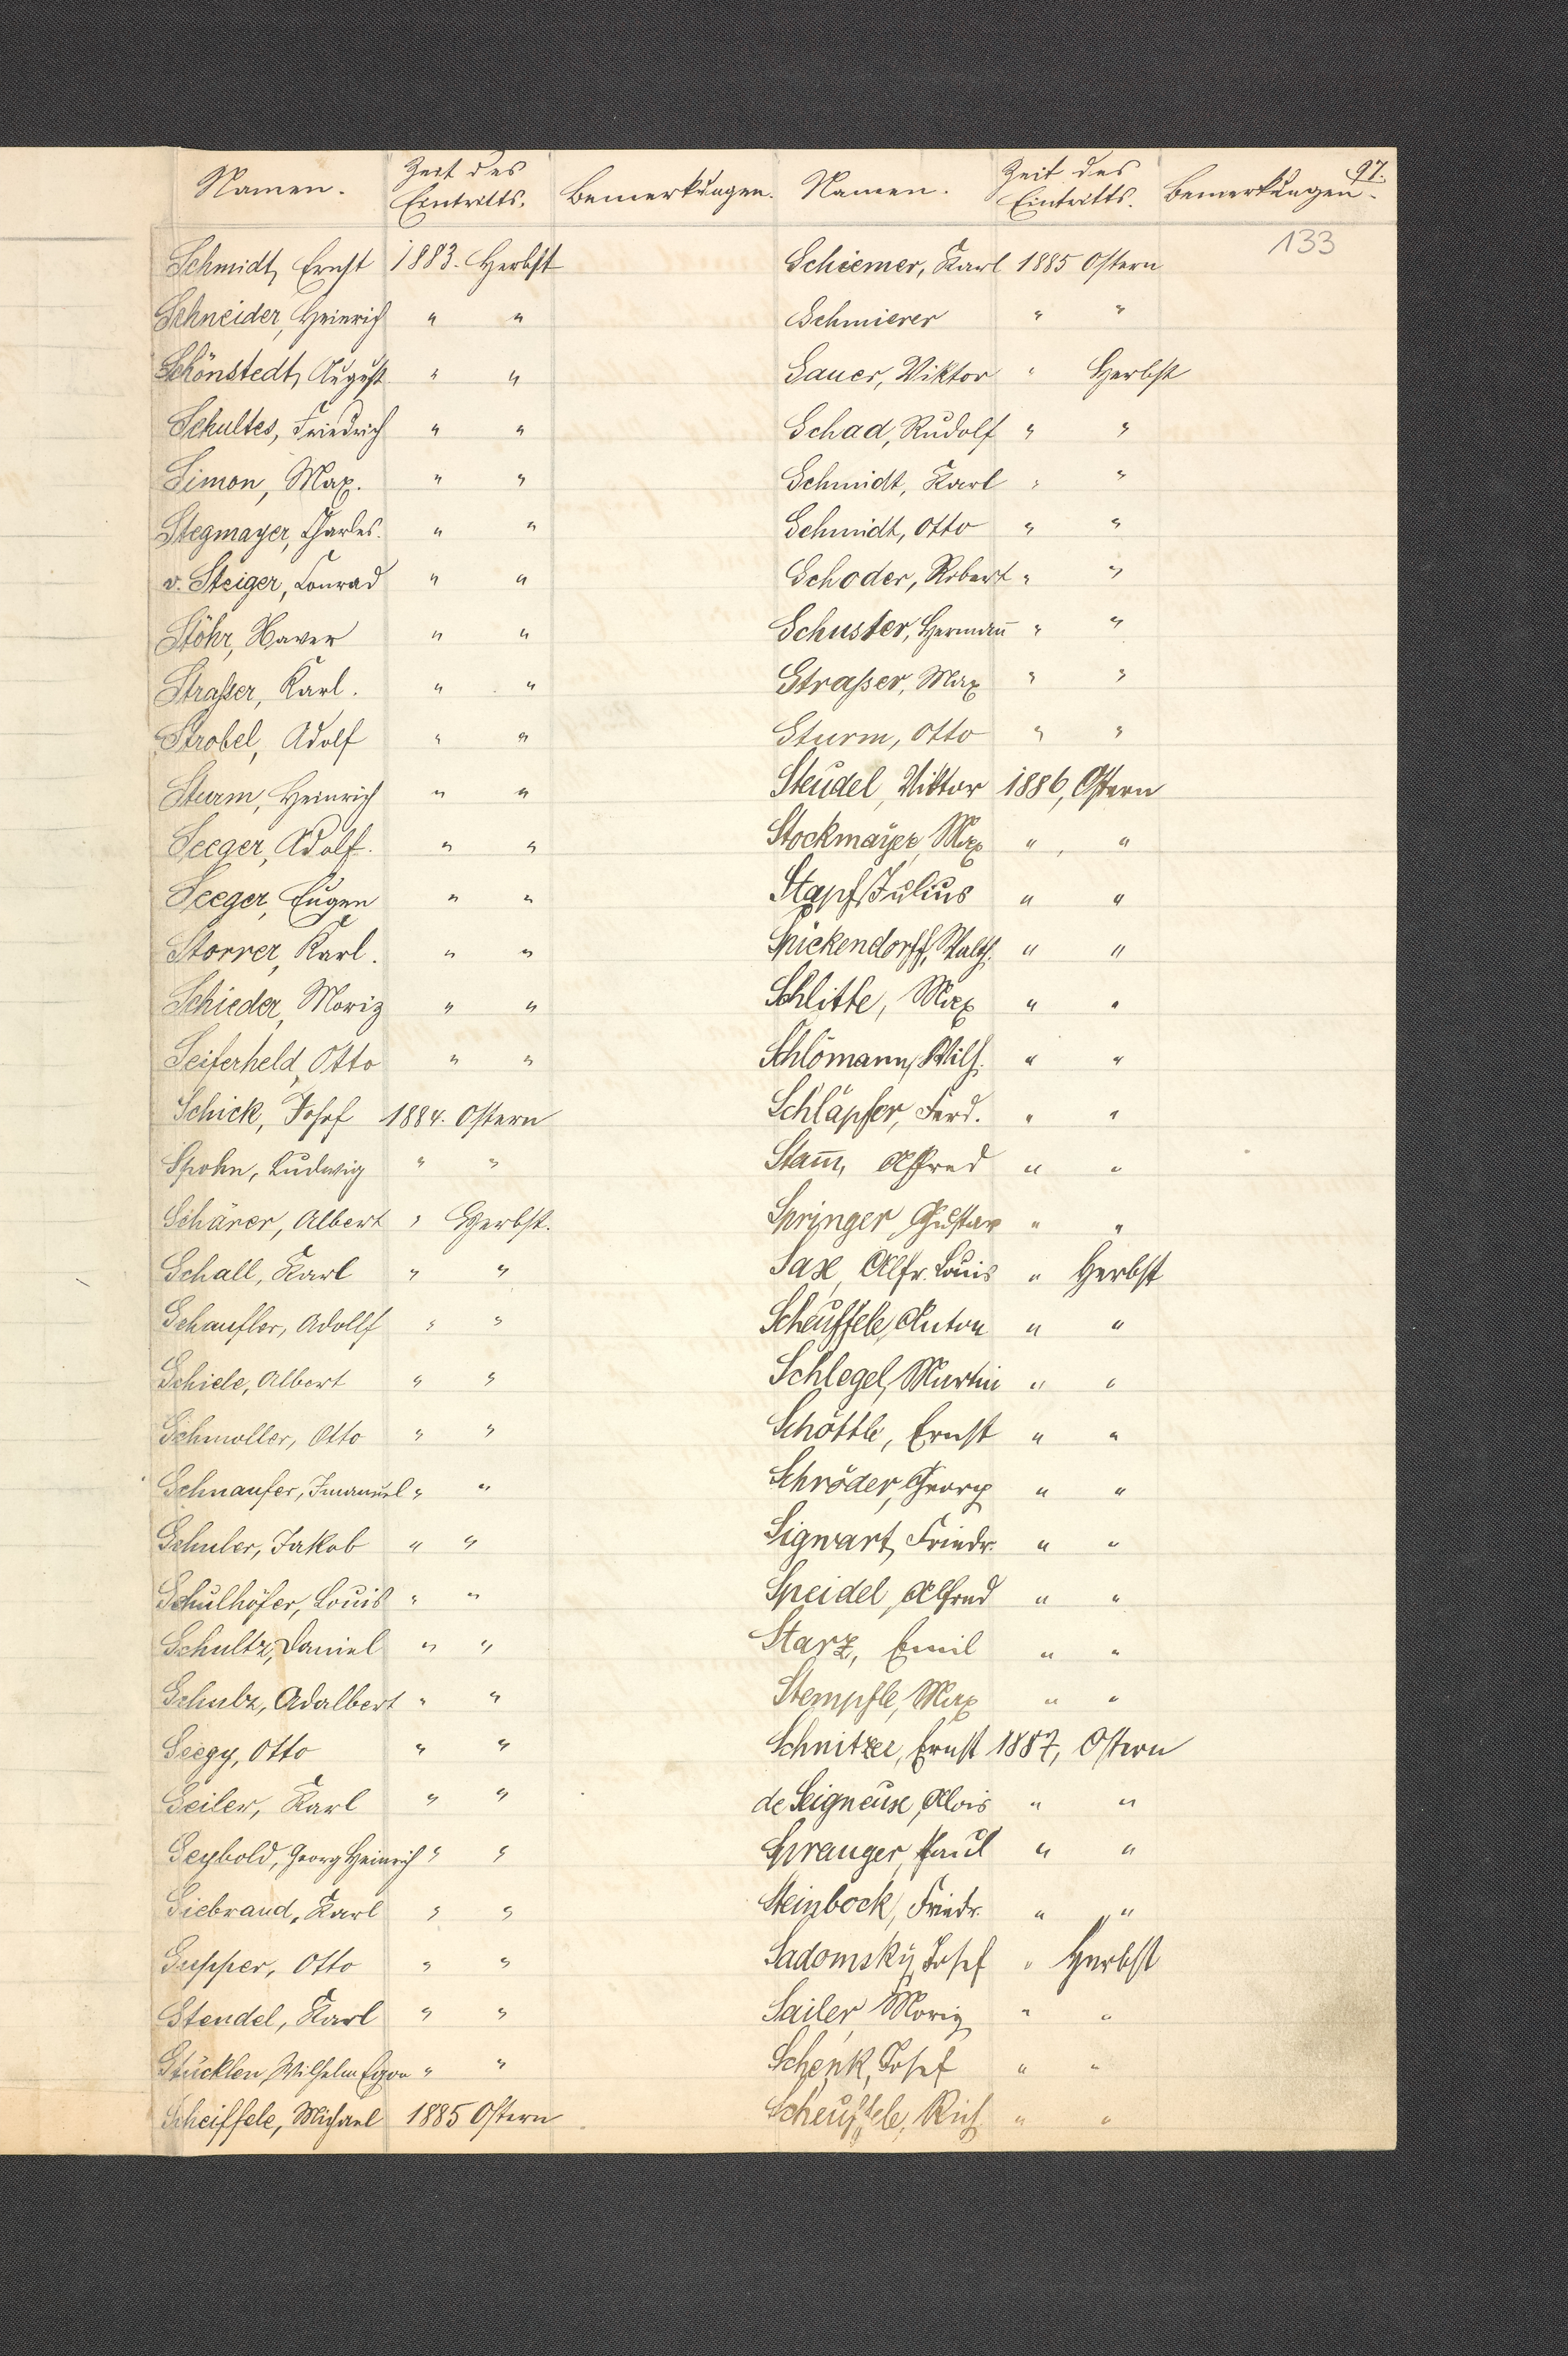 97.
133
Namen. Zeit des Eintritts. Bemerkungen.
Schmidt, Ernst 1883. Herbst
Schneider, Heinrich " "
Schönstedt, August " "
Schultes, Friedrich " "
Simon, Max. " "
Stegmayer, Charles. " "
v. Steiger, Conrad " "
Stöhr, Xaver " "
Straßer, Karl. " "
Strobel, Adolf " "
Sturm, Heinrich " "
Seeger, Adolf. " "
Seeger, Eugen " "
Storrer, Karl. " "
Schieder, Moriz " "
Seiferheld, Otto " "
Schick, Josef 1884. Ostern
Spohn, Ludwig " "
Schärer, Albert " Herbst.
Schall, Karl " "
Schaufler, Adolf " "
Schiele, Albert " "
Schmoller, Otto " "
Schnaufer, Imanuel " "
Schuler, Jakob " "
Schülhöfer, Louis " "
Schultz, Daniel " "
Schulz, Adalbert " "
Seegy, Otto " "
Seiler, Karl " "
Seybold, Georg Heinrich " "
Siebrand, Karl " "
Supper, Otto " "
Stendel, Karl " "
Stücklen, Wilhelm Egon " "
Scheiffele, Michael 1885 Ostern
Namen. Zeit des Eintritts. Bemerkungen.
Schiemer, Karl 1885 Ostern
Schmierer " "
Sauer, Viktor " Herbst
Schad, Rudolf " "
Schmidt, Karl " "
Schmidt, Otto " "
Schoder, Robert " "
Schuster, Hermañ " "
Straßer, Max " "
Sturm, Otto " "
Steudel, Viktor 1886, Ostern
Stockmayer, Max " "
Stapf, Julius " "
Spickendorff, Walth. " "
Schlitte, Max " "
Schlömann, Wilh. " "
Schläpfer, Ferd. " "
Stam̄, Alfred " "
Springer, Gustav " "
Sax, Alfr. Louis " Herbst
Scheuffele, Anton " "
Schlegel, Martin " "
Schöttle, Ernst " "
Schröder, Georg " "
Sigwart, Friedr. " "
Speidel, Alfred " "
Starz, Emil " "
Stempfle, Max " "
Schnitzer, Ernst 1887, Ostern
de Seigneux, Alois " "
Spranger, Paul " "
Steinbock, Friedr. " "
Sadomsky, Josef " Herbst
Sailer, Moriz " "
Schenk, Josef " "
Scheuffele, Rich. " "